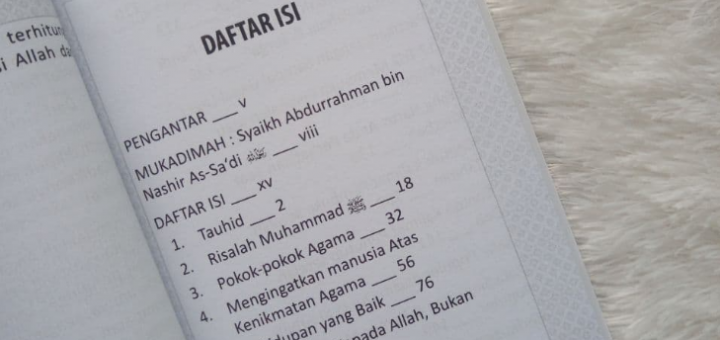 terhitun
si Allah da
DAFTAR ISI
PENGANTAR ___ v
MUKADIMAH : Syaikh Abdurrahman bin
Nashir As-Sa'di ___ viii
DAFTAR ISI ___ xv
1. Tauhid ___ 2
2. Risalah Muhammad ﷺ ___ 18
3. Pokok-pokok Agama ___ 32
4. Mengingatkan manusia Atas
Kenikmatan Agama ___ 56
idupan yang Baik ___ 76
pada Allah, Bukan